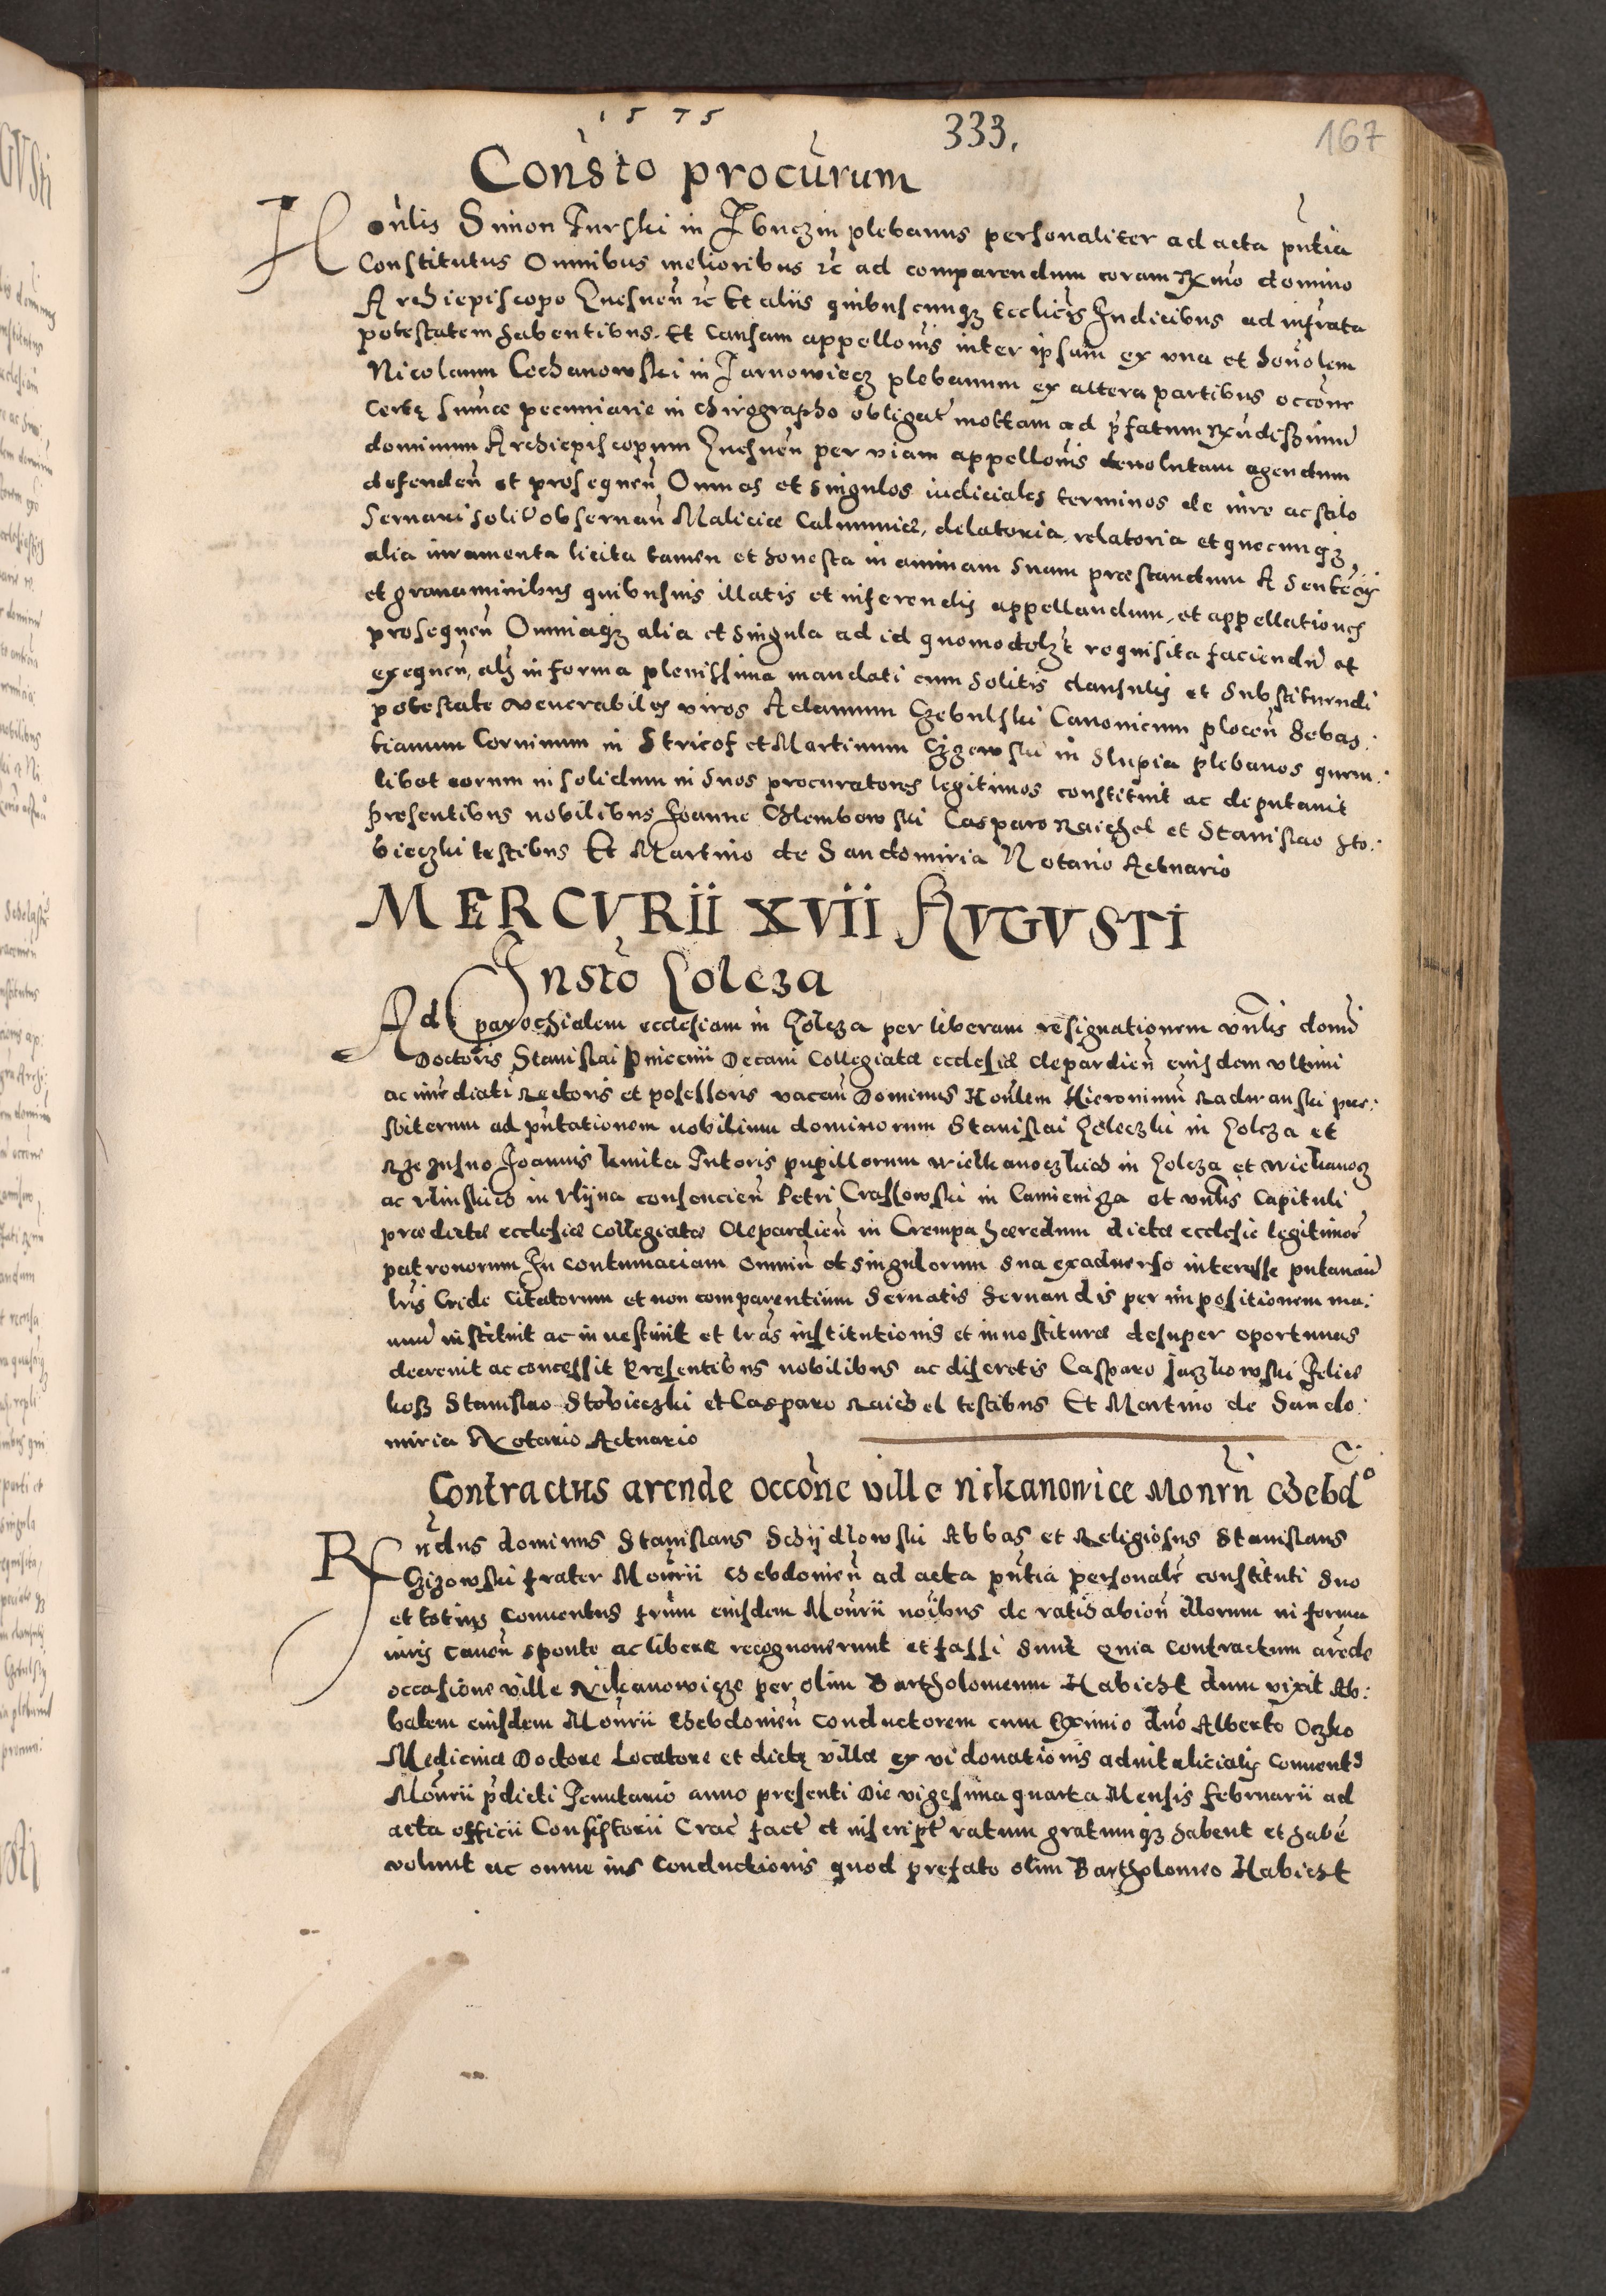 1575
333.
167
Consto procurum
Honlis Simon Turski in Ibuczin plebanus personaliter ad acta pntia
Constitutus Omnibus melioribus rc ad comparendum coram Rxmo domino
Archiepiscopo Gnesnen rc Et aliis quibuscunqz Ecclicis Judicibus ad infrata
potestatem habentibus. Et Causam appellonis inter ipsum ex una et honolem
Nicolaum Cochanowski in Jarnowiecz plebanum ex altera partibus occone
Certę summe pecuniarie in chirographo obligat mottam ad pfatum Rxndiszimu
dominum Archiepiscopum Gnesnen per viam appellonis devolutam agendum
defenden et prosequen Omnes et singulos iudiciales terminos de iure ac stilo
servari soli observan Malicie Calumnie, delatoria relatoria et quecunqz
alia iuramenta licita tamen et honesta in animam suam præstandum A sentecijs
et gravaminibus quibusvis illatis et inferendis appellandum, et appellationes
prosequen Omniaqz alia et singula ad id quomodolzt requisita faciendu et
exequen, alz in forma plenissima mandati cum solitis clausulis et substituendi
potestate venerabiles viros Adamum Czebulski Canonicum plocen Sebas:
tianum Corvinum in Stricof et Martinum Czizowski in Slupia plebanos quem:
libet eorum in solidum in suos procuratores legitimos constituit ac deputavit
presentibus nobilibus Joanne Chlembowski Casparo Raichel et Stanislao Sto:
bieczki testibus Et Martino de Sandomiria Notario Actuario
MERCVRII XVII AVGVSTI
Insto Golcza
Ad parochialem ecclesiam in Golcza per liberam resignationem vnlis domi
Doctoris Stanislai Decani Collegiatæ ecclesiæ clepardien eiusdem ultimi
ac immediati Rectoris et possessoris vacan Dominus Honlem Hieronimu Radwanski pres:
biterum ad pntationem nobilium dominorum Stanislai Goleczki in Golcza et
Joannis kmita Tutoris pupillorum wielkanoczkich in Golcza et wielkanocz
ac Ulinskich in Ulijna consencien Petri Crassowski in Camienicza et vnlis Capituli
prædictæ ecclesiæ Collegiatæ Clepardien in Crempa hæredum dictæ ecclesie legitimor
patronorum In contumaciam omniu et singulorum sua exadverso interesse putanciu
lris Cride Citatorum et non comparentium servatis servandis per impositionem ma:
nuu instituit ac investivit et lras institutionis et investituræ desuper oportunas
decrevit ac concessit Presentibus nobilibus ac discretis Casparo Jaczkowski Felice
kosz Stanislao Stobieczki et Casparo Raichel testibus Et Martino de Sando:
miria Notario Actuario
Contractus arende occone ville nikanowice Monrn chebdo
Rndus dominus Stanislaus Schijdlowski Abbas et Religiosus Stanislaus
Czizowski frater Monrii Chebdonien ad acta pntia personalr constituti suo
et totius Conventus frum eiusdem Monrii noibus de ratihabion illorum in forma
iuris Canon sponte ac libere recognoverunt et fassi sunt quia Contractum arede
occasione ville Nikanowicze per olim Bartholomeum Habicht dum vixit Ab:
batem eiusdem Monrii Chebdonien Conductorem cum Eximio dno Alberto Oczko
Medicinæ Doctore Locatore et dictę villæ ex vi donationis advitalicialis Conventus
Monrii pdicti Tenutario anno presenti Die vigesima quarta Mensis februarii ad
acta officii Consistorii Crac fact et inscript ratum gratumqz habent et habe
volunt ac omne ius Conductionis quod prefato olim Bartholomeo Habicht